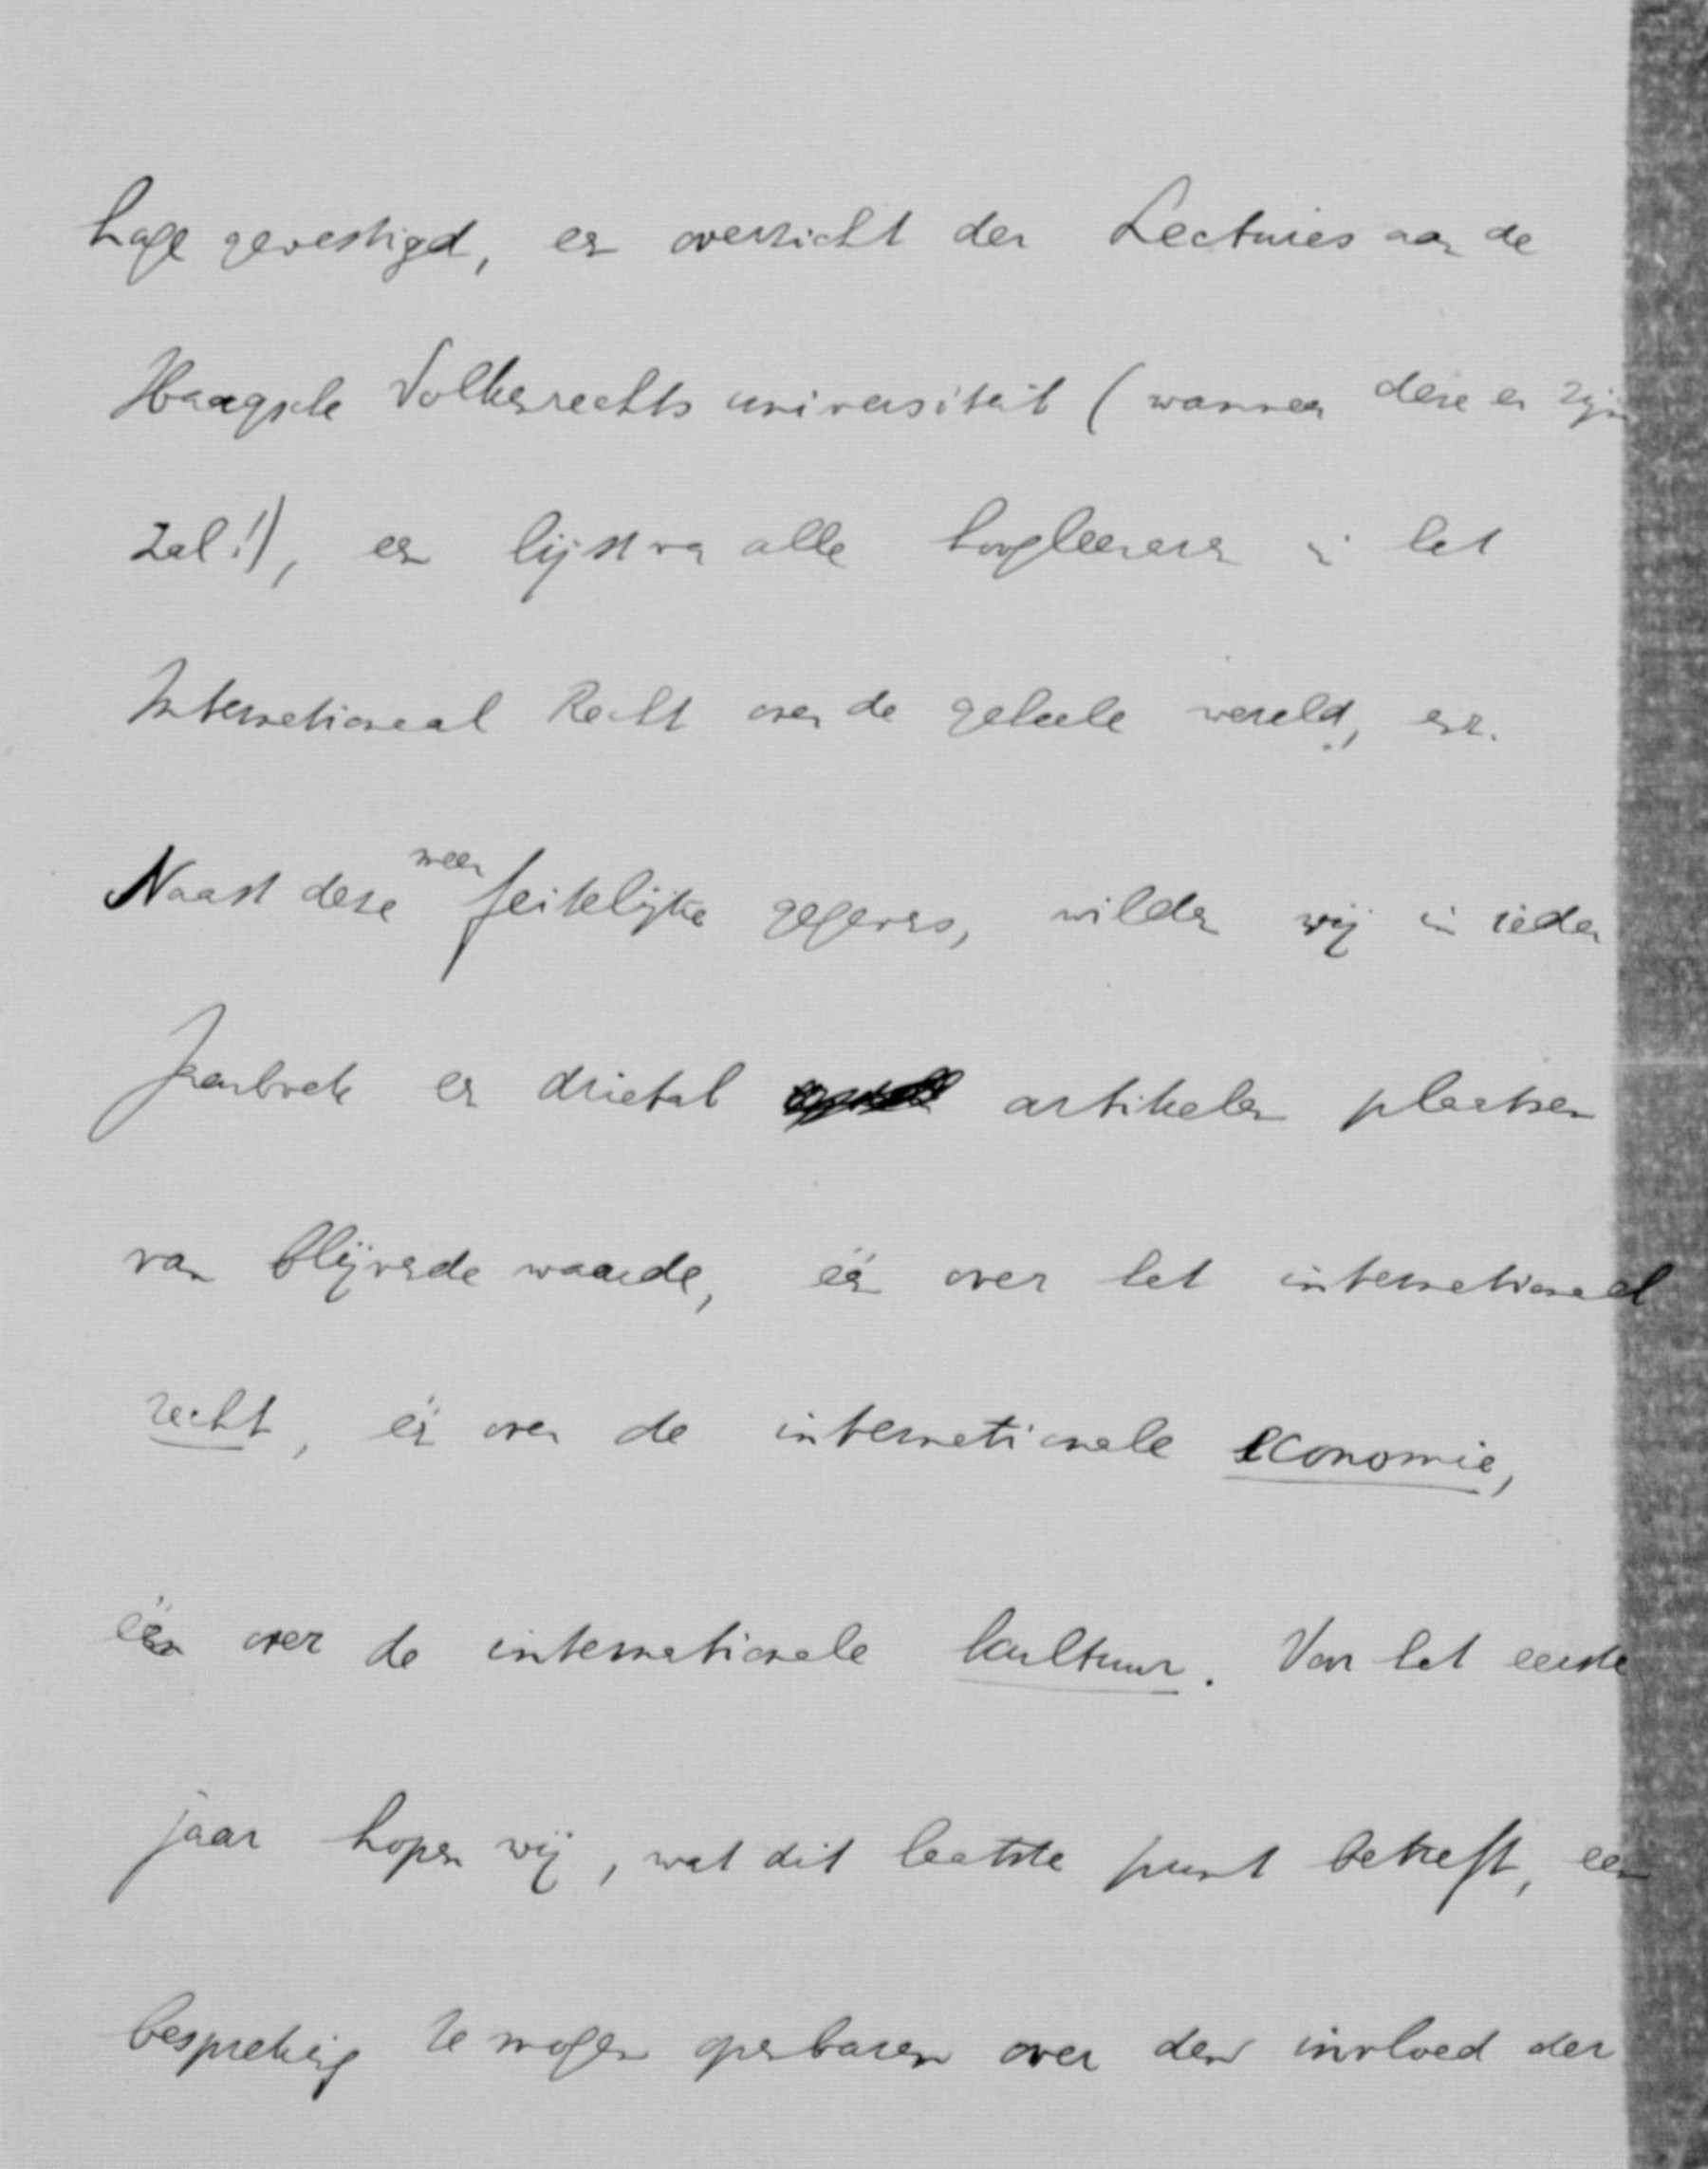 hage gevestigd, een overzicht der Lectures aan de
Haagsche Volkenrechts universiteit (wanneer deze er zijn
zal!), een lijst van alle hoogleeraren in het
Internationaal Recht over de geheele wereld, enz.
Naast deze meer feitelijke gegevens, wilden wij in ieder
Jaarboek een drietal artikelen plaatsen
van blijvende waarde, één over het internationaal
recht, één over de internationale economie,
één over de internationale kultuur. Van het eerste
jaar hopen wij, wat dit laatste punt betreft, een
bespreking te mogen openbaren over den invloed der